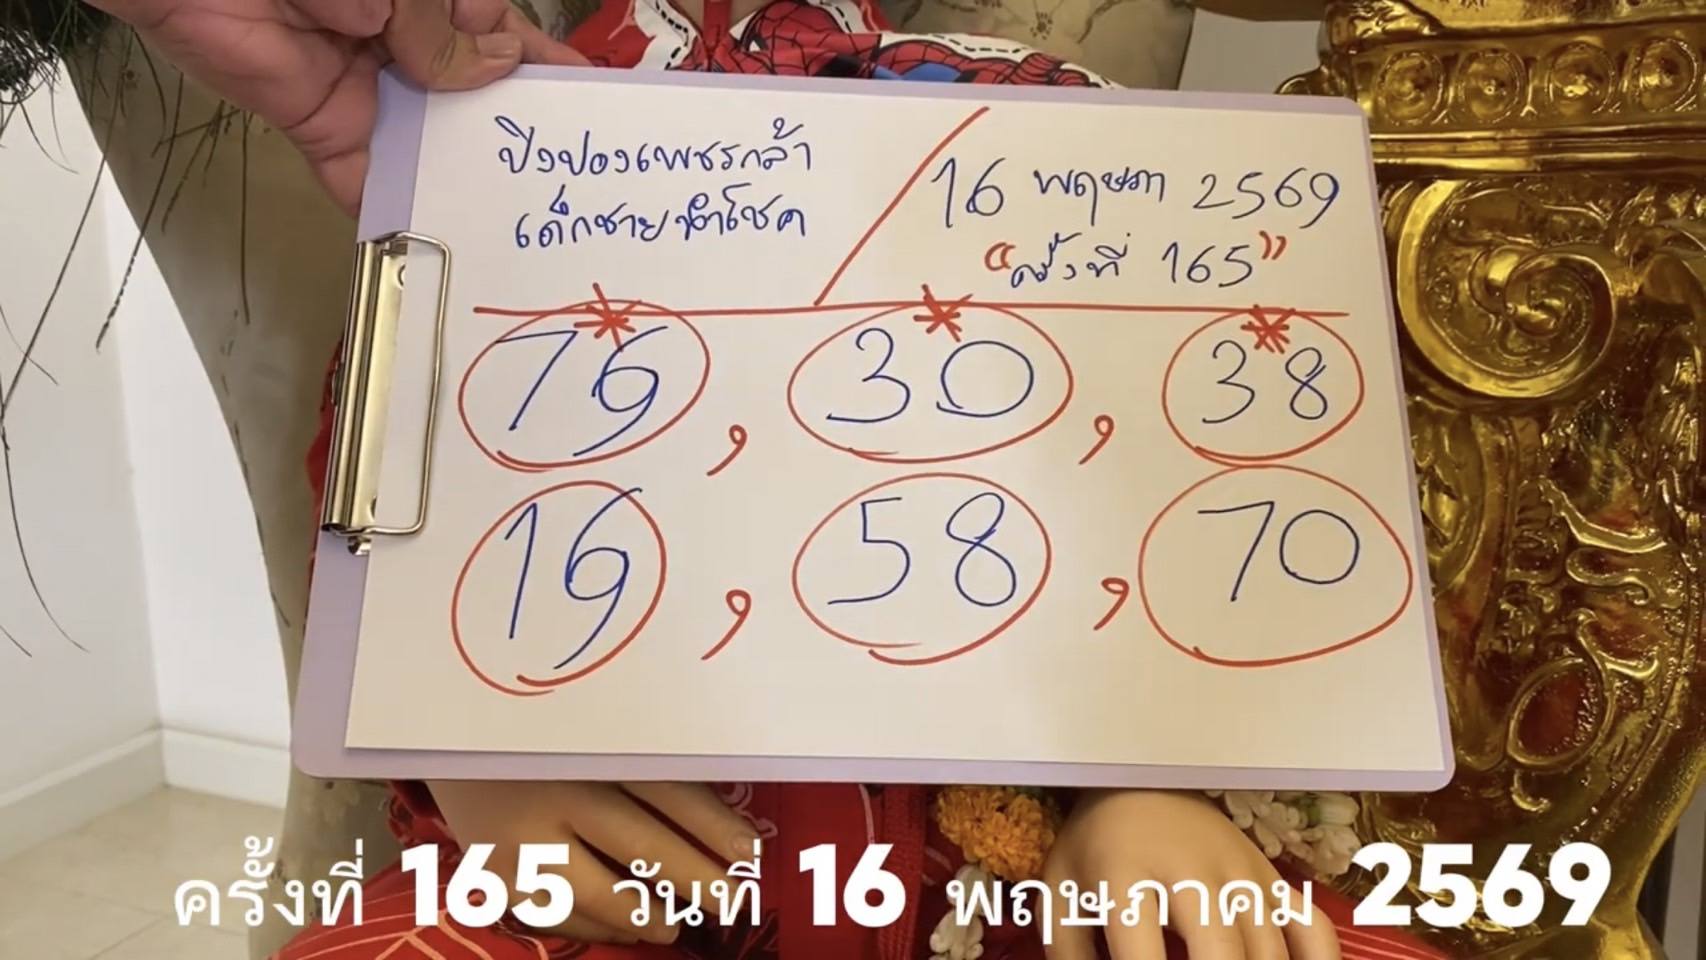 ปิงปองเพชรกล้า
เด็กชายนำโชค
16 พฤษภา 2569
"ครั้งที่ 165"
76 , 30 , 38
16 , 58 , 70
ครั้งที่ 165 วันที่ 16 พฤษภาคม 2569